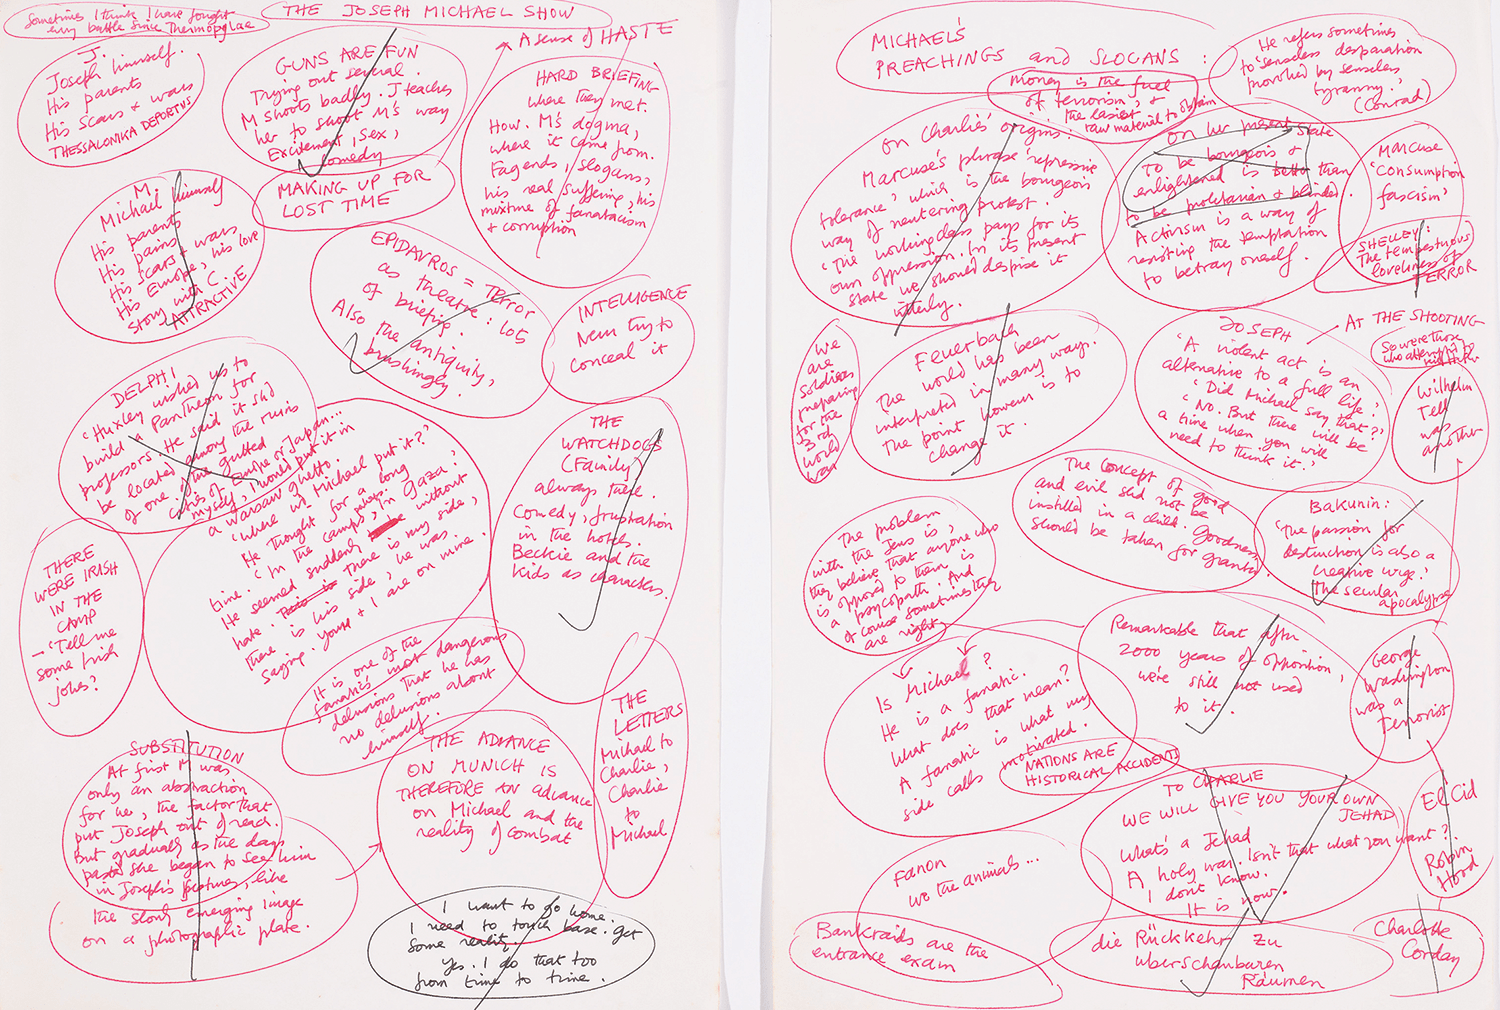 Sometimes I think I have fought
every battle since Thermopylae
THE JOSEPH MICHAEL SHOW
J.
Joseph himself.
His parents
His scars + wars
THESSALONIKA DEPORTUS
GUNS ARE FUN
Trying out several.
M shoots badly. J teaches
her to shoot M's way
Excitement, sex,
comedy
A sense of HASTE
HARD BRIEFING
where they met.
How. M's dogma,
where it came from.
Fagends, slogans,
his real suffering, his
mixture of fanaticism
+ corruption
MAKING UP FOR
LOST TIME
M.
Michael himself
His parents
His pains
His scars + wars
His Europe, his love
story with C
ATTRACTIVE
EPIDAVROS = Terror
as theatre: lots
of briefing.
Also the antiquity,
brushingly.
INTELLIGENCE
Never try to
conceal it
DELPHI
'Huxley wished us to
build a Pantheon for
professors. He said it shd
be located among the ruins
of one of the gutted
cities of Europe or Japan...
myself, I would put it in
a Warsaw ghetto.
'Where wd Michael put it?'
He thought for a long
time. 'In the camps, perhaps. In Gaza.'
He seemed suddenly without
hate. There is my side,
there is his side, he was
saying. Yours + I are on mine.
THE
WATCHDOGS
(Family)
always there.
Comedy, frustration
in the hotels.
Beckie and the
kids as characters.
THERE
WERE IRISH
IN THE
CAMP
— 'Tell me
some Irish
jokes?'
It is one of the
fanatics' most dangerous
delusions that he has
no delusions about
himself.
THE
LETTERS
Michael to
Charlie,
Charlie
to
Michael
SUBSTITUTION
At first M was
only an abstraction
for her, the factor that
put Joseph out of reach.
But gradually as the days
pass she began to see him
in Joseph's features, like
the slowly emerging image
on a photographic plate.
THE ADVANCE
ON MUNICH IS
THEREFORE AN advance
on Michael and the
reality of combat
I want to go home.
I need to touch base. Get
some reality.
Yes. I do that too
from time to time.
MICHAEL'S
PREACHINGS and SLOGANS:
Money is the fuel
of terrorism, +
the easiest
raw material to obtain
He refers sometimes
to 'senseless desparation
provoked by senseless
tyranny.'
(Conrad)
On Charlie's origins:
Marcuse's phrase 'repressive
tolerance' which is the bourgeois
way of neutering protest.
'The working class pays for its
own oppression. In its present
state we should despise it
utterly.
On her present state
To be bourgeois +
enlightened is better than
to be proletarian + blinded.
Activism is a way of
resisting the temptation
to betray oneself.
Marcuse
'Consumption
fascism'
SHELLEY:
The tempestuous
loveliness of
TERROR
We
are
soldiers
preparing
for the
3rd
world
war
Feuerbach
The world has been
interpreted in many ways.
The point however is to
change it.
JOSEPH
'A violent act is an
alternative to a full life.'
'Did Michael say that?'
'No. But there will be
a time when you will
need to think it.'
AT THE SHOOTING
So were those
who attempted to
kill Hitler.
Wilhelm
Tell
was
another
The concept of good
and evil shd not be
instilled in a child. Goodness
should be taken for granted
Bakunin:
'The passion for
destruction is also a
creative urge.'
The secular
apocalypse
The problem
with the Jews is,
they believe that anyone who
is opposed to them is
a psycopath. And
of course sometimes they
are right.
Is Michael?
He is a fanatic.
What does that mean?
A fanatic is what my
side calls motivated.
NATIONS ARE
HISTORICAL ACCIDENTS
Remarkable that after
2000 years of opposition,
we're still not used
to it.
George
Washington
was a
Terrorist
TO CHARLIE
WE WILL GIVE YOU YOUR OWN
JEHAD
What's a Jehad
A holy war. Isn't that what you want?
I don't know.
It is now.
El Cid
Robin
Hood
Fanon
we the animals...
Bankraids are the
entrance exam
die Rückkehr zu
überschaubaren
Räumen
Charlotte
Corday